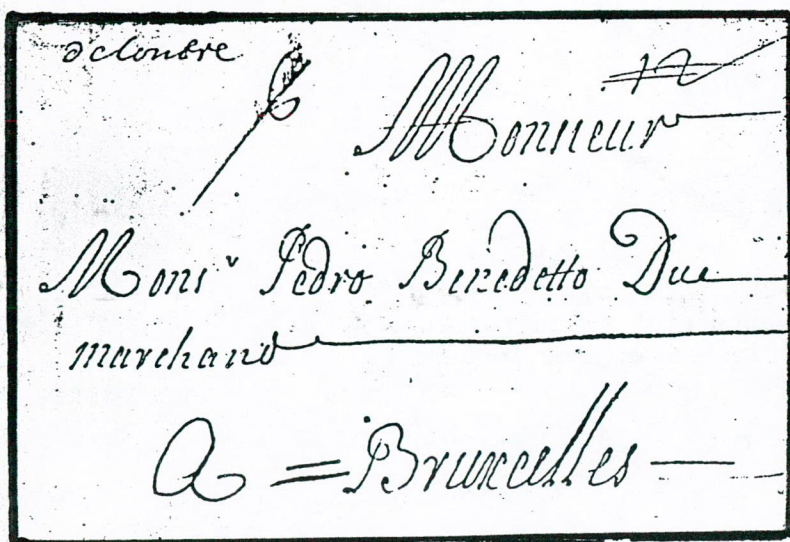 de londre
Monsieur
Monsr Pedro Benedetto Due
marchand
A = Bruxcelles